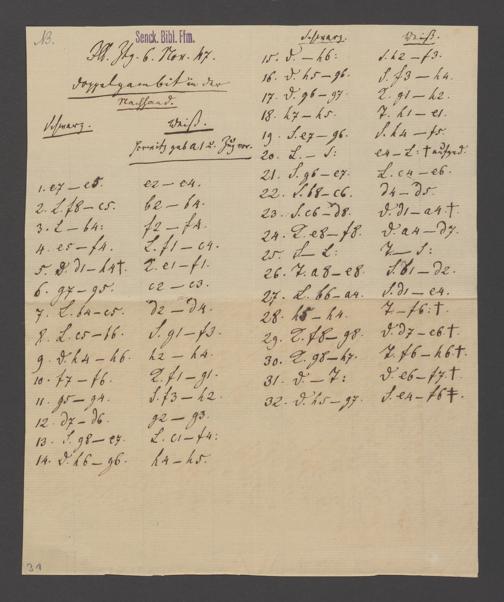 NB.
Senck. Bibl. Ffm.
6. Nov. 47.
Doppelgambit in der
Nachhand.
Schwarz. Weiß.
1. e7 — e5. e2 — e4.
2. L. f8 — c5. b2 — b4.
3. L — b4: f2 — f4.
4. e5 — f4. L. f1 — c4.
5. D. d1 — h4† K. e1 — f1.
6. g7 — g5. c2 — c3.
7. L. b4 — c5. d2 — d4.
8. L. c5 — b6. S. g1 — f3.
9. D. h4 — h6. h2 — h4.
10. f7 — f6. K. f1 — g1.
11. g5 — g4. S. f3 — h2.
12. d7 — d6. g2 — g3.
13. S. g8 — e7. L. c1 — f4:
14. D. h6 — g6. h4 — h5.
Schwarz. Weiß.
15. D. — h6: S. h2 — f3.
16. D. h5 — g6. S. f3 — h4.
17. D. g6 — g7. K. g1 — h2.
18. h7 — h5. T. h1 — e1.
19. S. e7 — g6. S. h4 — f5.
20. L. — S: e4 — L: †
21. S. g6 — e7. L. c4 — e6.
22. S. b8 — c6. d4 — d5.
23. S. c6 — d8. D. d1 — a4 †.
24. K. e8 — f8. D. a4 — d7.
25. S — L: T — S:
26. T. a8 — e8. S. b1 — d2.
27. L. b6 — a4. S. d1 — e4.
28. h5 — h4. T — f6: †.
29. K. f8 — g8. D. d7 — e6 †.
30. K. g8 — h7. T. f6 — h6 †.
31. D — T: D. e6 — f7. †
32. D. h5 — g7. S. e4 — f6 ‡.
31